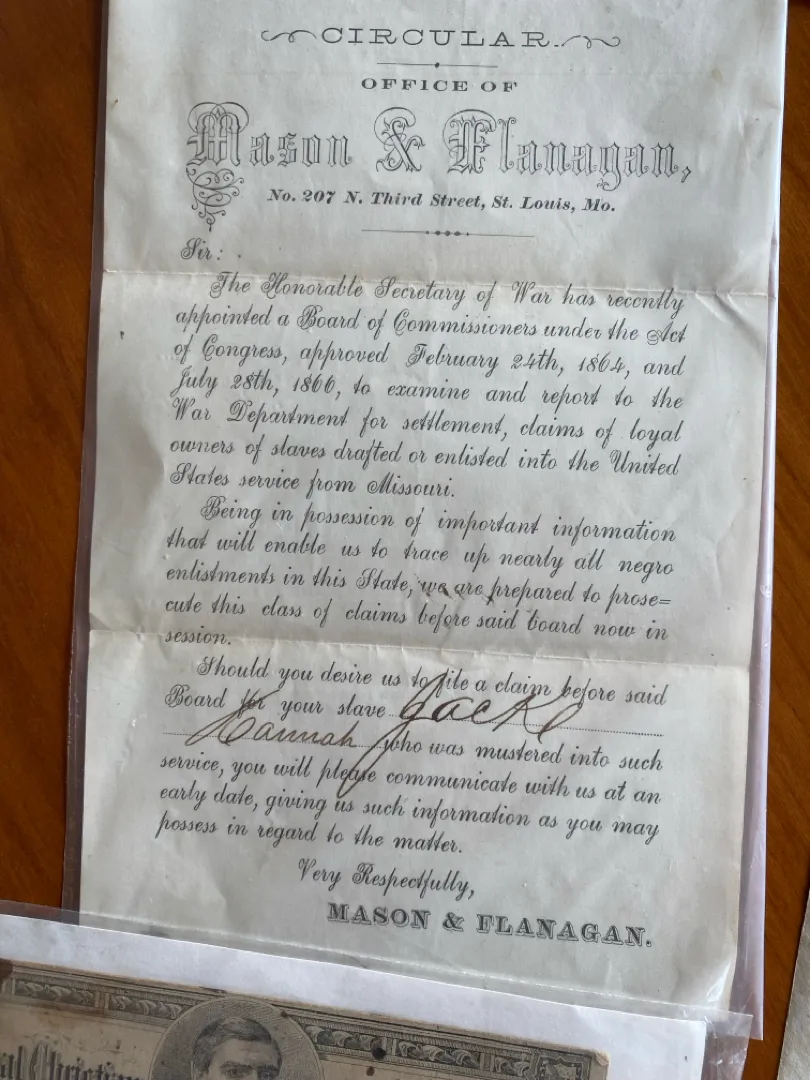 CIRCULAR.
OFFICE OF
Mason & Flanagan,
No. 207 N. Third Street, St. Louis, Mo.
Sir:
The Honorable Secretary of War has recently
appointed a Board of Commissioners under the Act
of Congress, approved February 24th, 1864, and
July 28th, 1866, to examine and report to the
War Department for settlement, claims of loyal
owners of slaves drafted or enlisted into the United
States service from Missouri.
Being in possession of important information
that will enable us to trace up nearly all negro
enlistments in this State, we are prepared to prose=
cute this class of claims before said board now in
session.
Should you desire us to file a claim before said
Board for your slave Jack
Hannah who was mustered into such
service, you will please communicate with us at an
early date, giving us such information as you may
possess in regard to the matter.
Very Respectfully,
MASON & FLANAGAN.